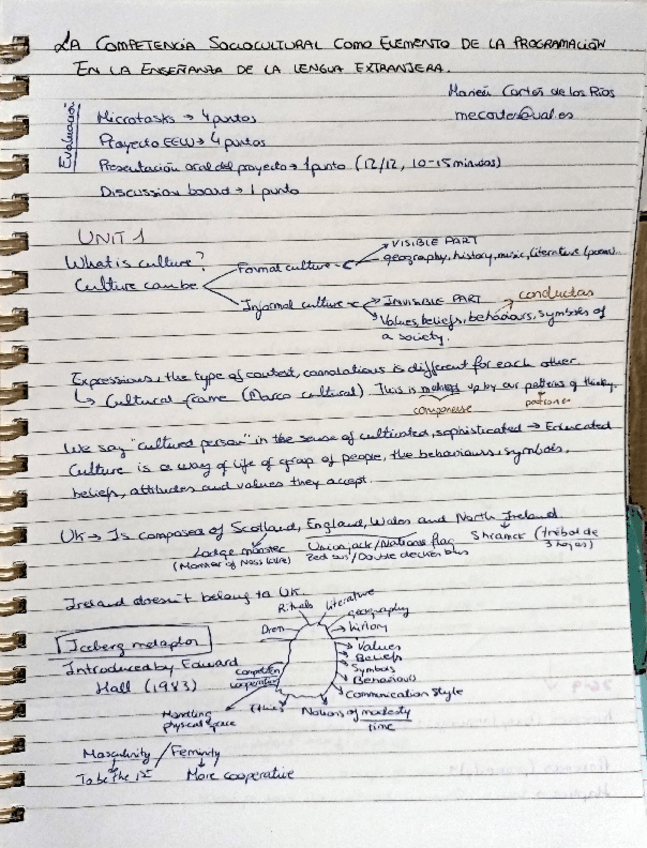 LA COMPETENCIA SOCIOCULTURAL COMO ELEMENTO DE LA PROGRAMACIÓN
EN LA ENSEÑANZA DE LA LENGUA EXTRANJERA.
Cortés de los Ríos
Evaluación
Microtasks → 4 puntos
Proyecto EEW → 4 puntos
Presentación oral del proyecto → 1 punto (12/12, 10-15 minutos)
Discussion board → 1 punto
UNIT 1
What is culture?
Culture can be
Formal culture
VISIBLE PART
geography, history, music, literature (poem)...
Informal culture
INVISIBLE PART
conductas
Values, beliefs, behaviours, symbols of
a society.
Expressions, the type of context, connotations is different for each other.
↳ Cultural frame (Marco cultural) This is up by our patterns of thinking.
componerse
patrones
We say "cultured person" in the sense of cultivated, sophisticated → Educated
Culture is a way of life of group of people, the behaviours, symbols,
beliefs, attitudes and values they accept.
UK → Is composed of Scotland, England, Wales and North Ireland.
Union jack/Nations flag
Shramck (trébol de
3 hojas)
Red bus/Double decker bus
Ireland doesn't belong to UK.
Iceberg metaphor
Introduced by Edward
Hall (1983)
Rituals
literature
geography
history
Dress
Values
Beliefs
Symbols
Behaviours
Communication style
Notions of modesty
time
Ethics
Handling
physical space
Masculinity / Feminity
To be the 1st
More cooperative